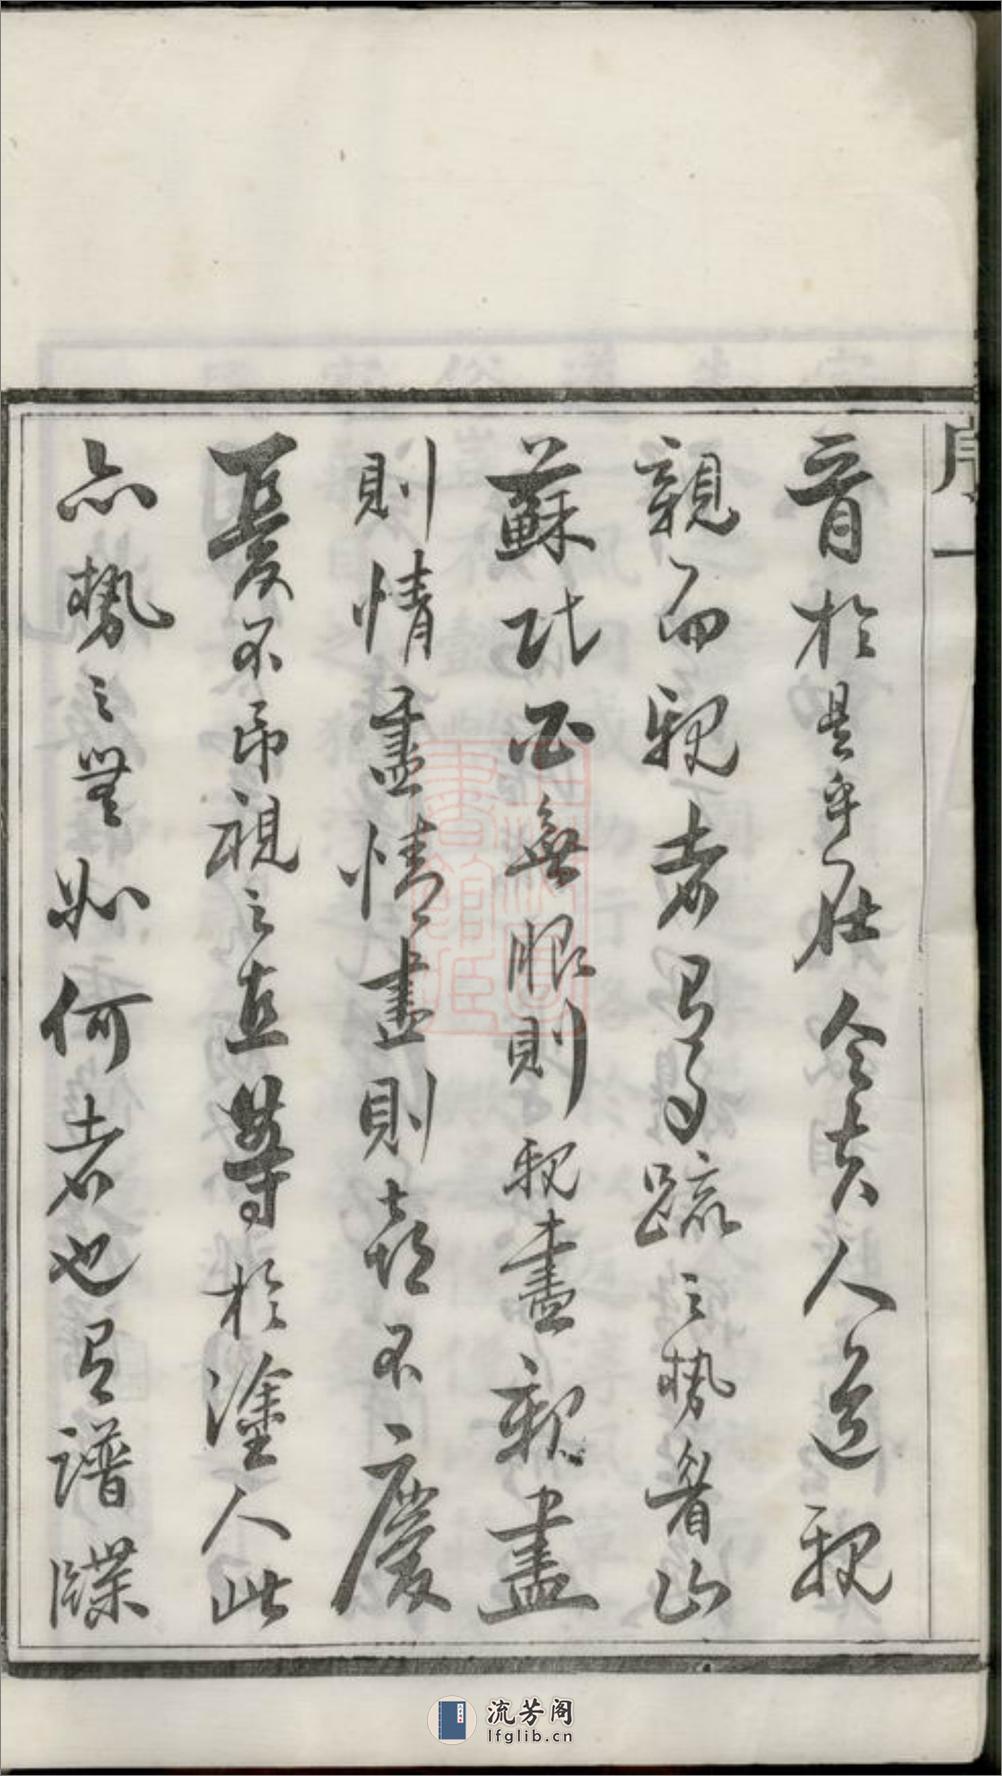 序一
音於是乎在今夫人道親
親而親者有疏之勢眉山
蘇氏無服則親盡親盡
則情盡情盡則喜不慶
憂不弔視之直等於塗人此
亦勢之無如何者也有譜牒
流芳阁
lfglib.cn